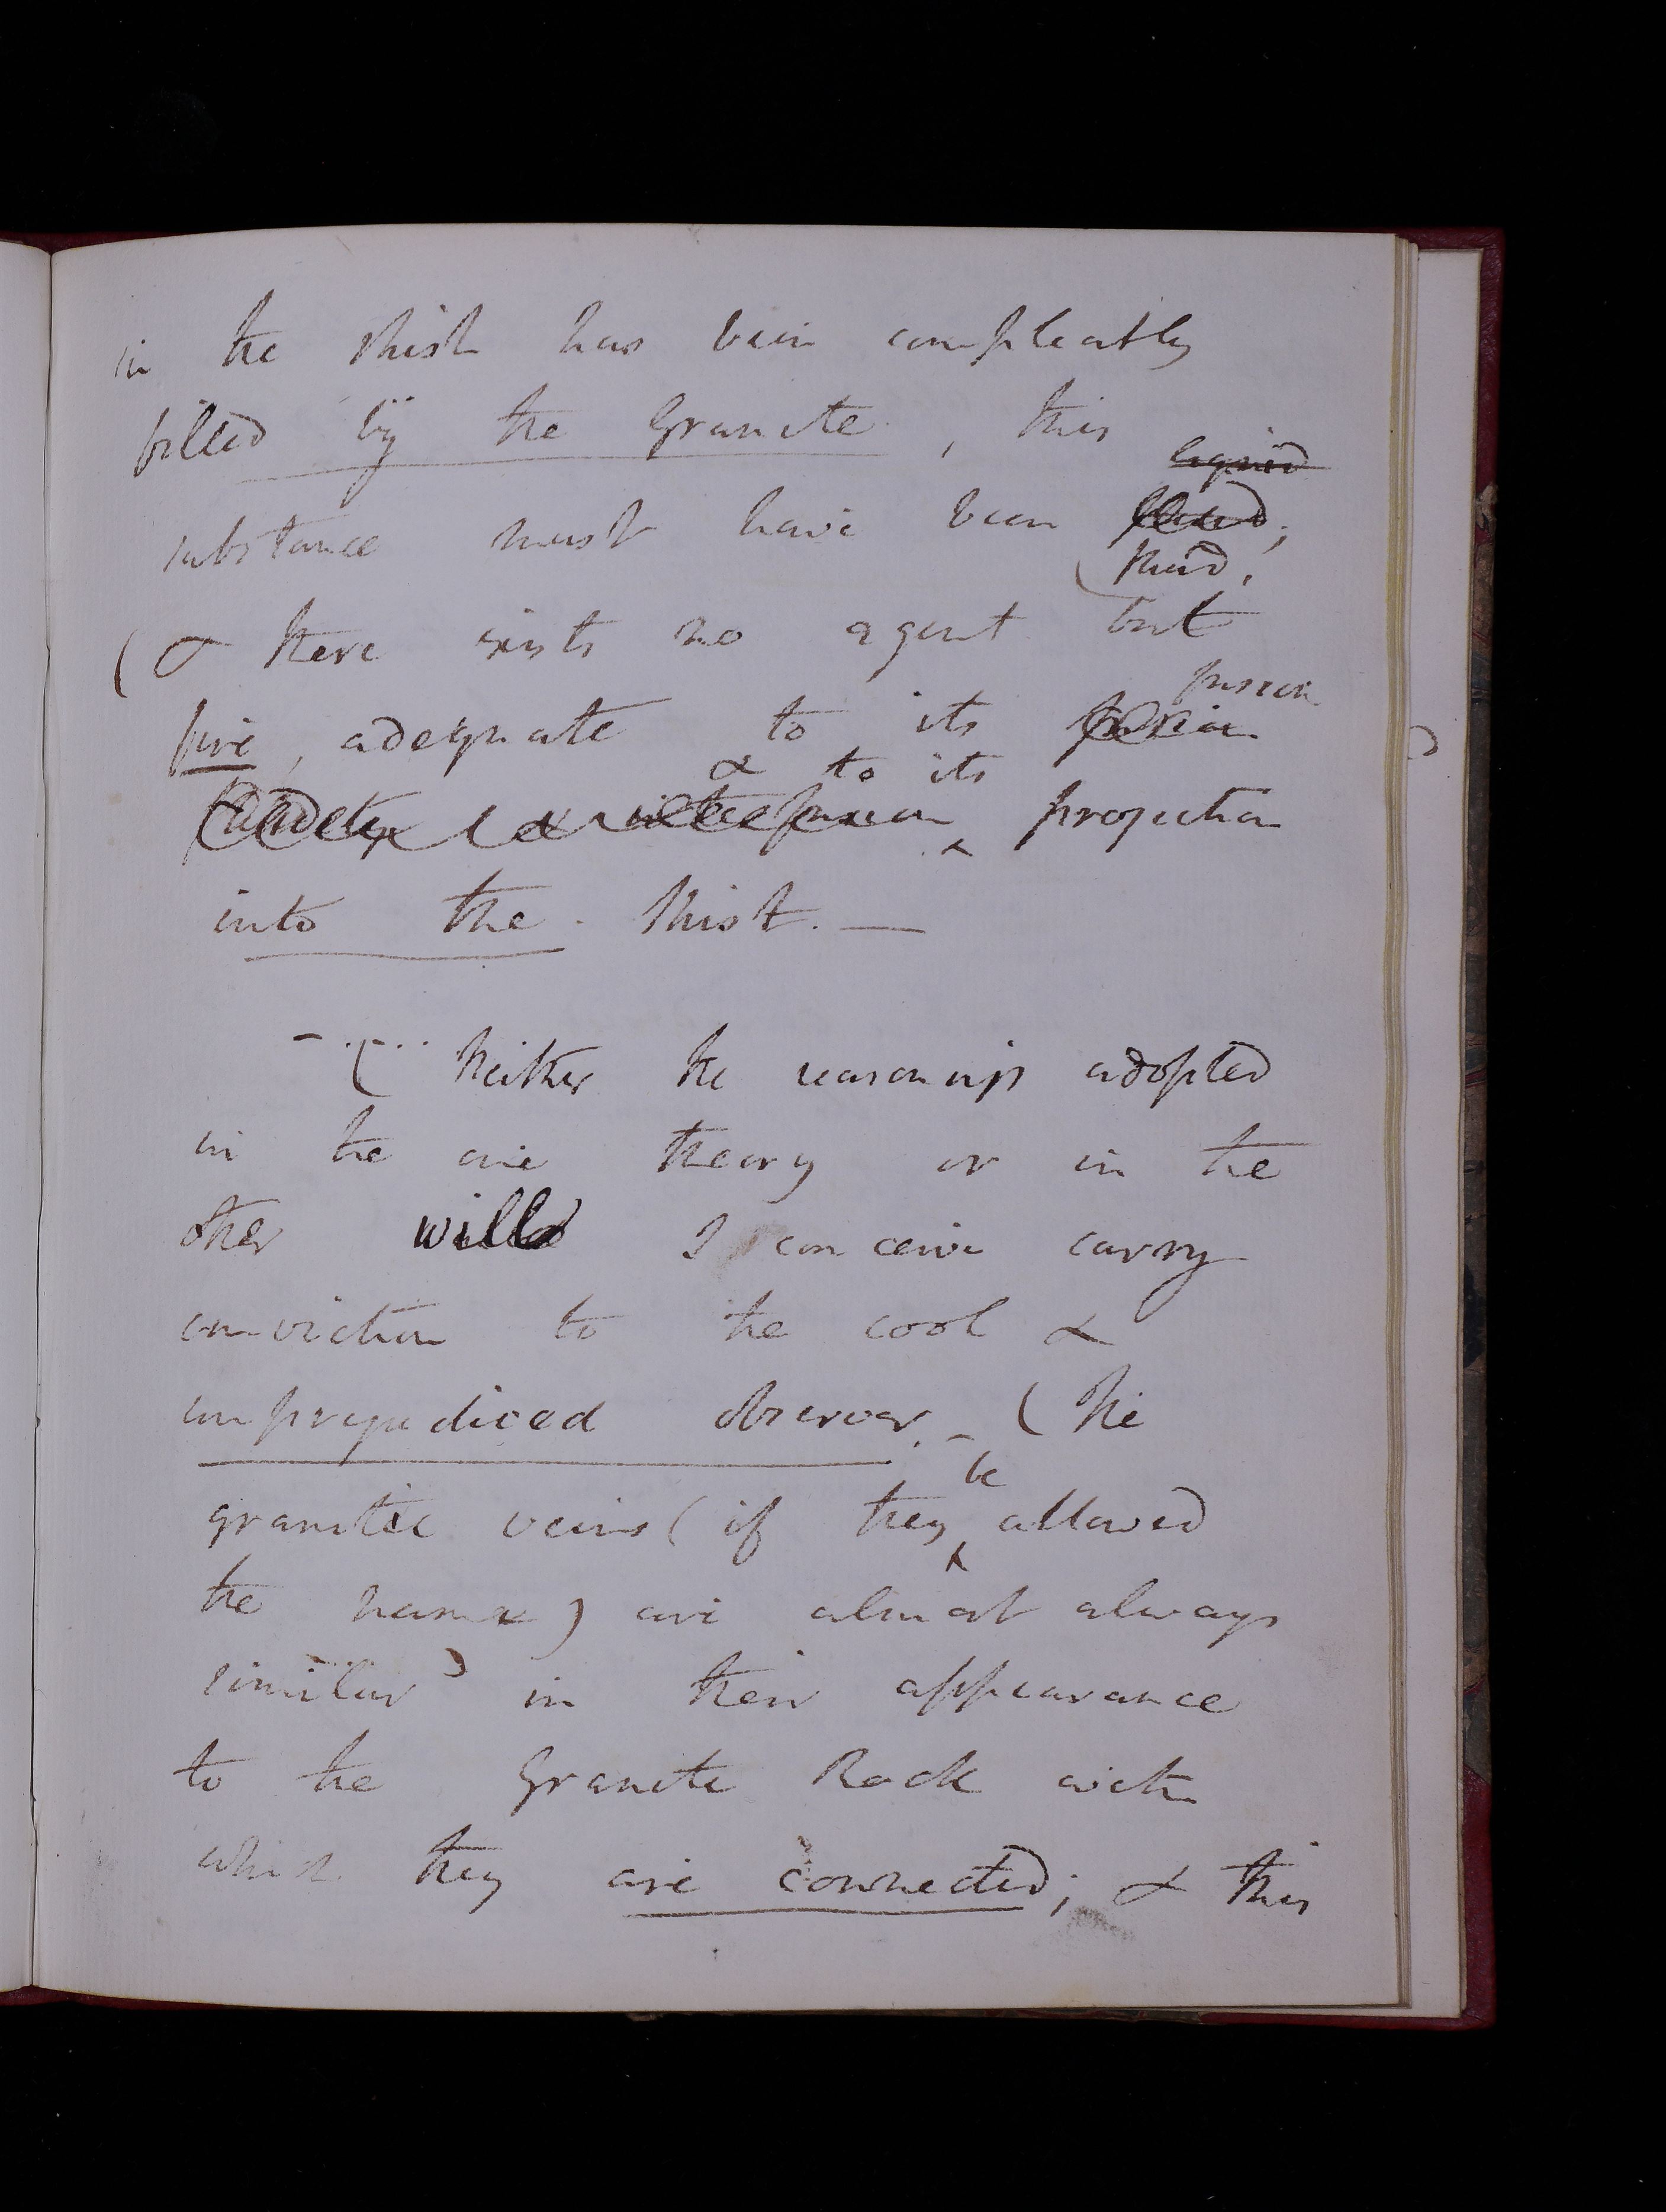 in the shist has been compleatly
filled by the Granite, this
liquid
substance must have been fluid;
fluid,
(& there exists no agent but
fusion
fire, adequate to its fusion
& to its
projection
into the shist. —
— (Neither the reasonings adopted
in the one theory or in the
other will I conceive carry
conviction to the cool &
unprejudiced observer. – (The
be
granitic veins (if they allowed
the name) are almost always
similar in their appearance
to the Granite Rock with
which they are connected; & this